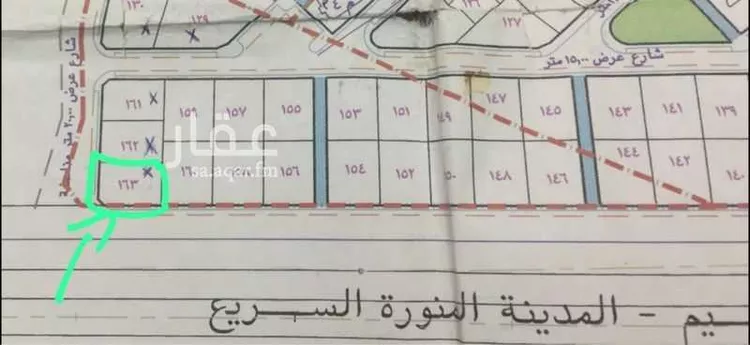 ١٣٠
١٢٩
١٢٧
شارع عرض ١٥,٠٠ متر
شارع عرض ٢٠,٠٠ متر
١٦١ ١٥٩ ١٥٧ ١٥٥ ١٥٣ ١٥١ ١٤٩ ١٤٧ ١٤٥ ١٤٣ ١٤١ ١٣٩
١٦٢
١٦٣ ١٥٦ ١٥٤ ١٥٢ ١٤٨ ١٤٦ ١٤٤ ١٤٢ ١٤٠
عقار
sa.aqar.fm
يم - المدينة المنورة السريع